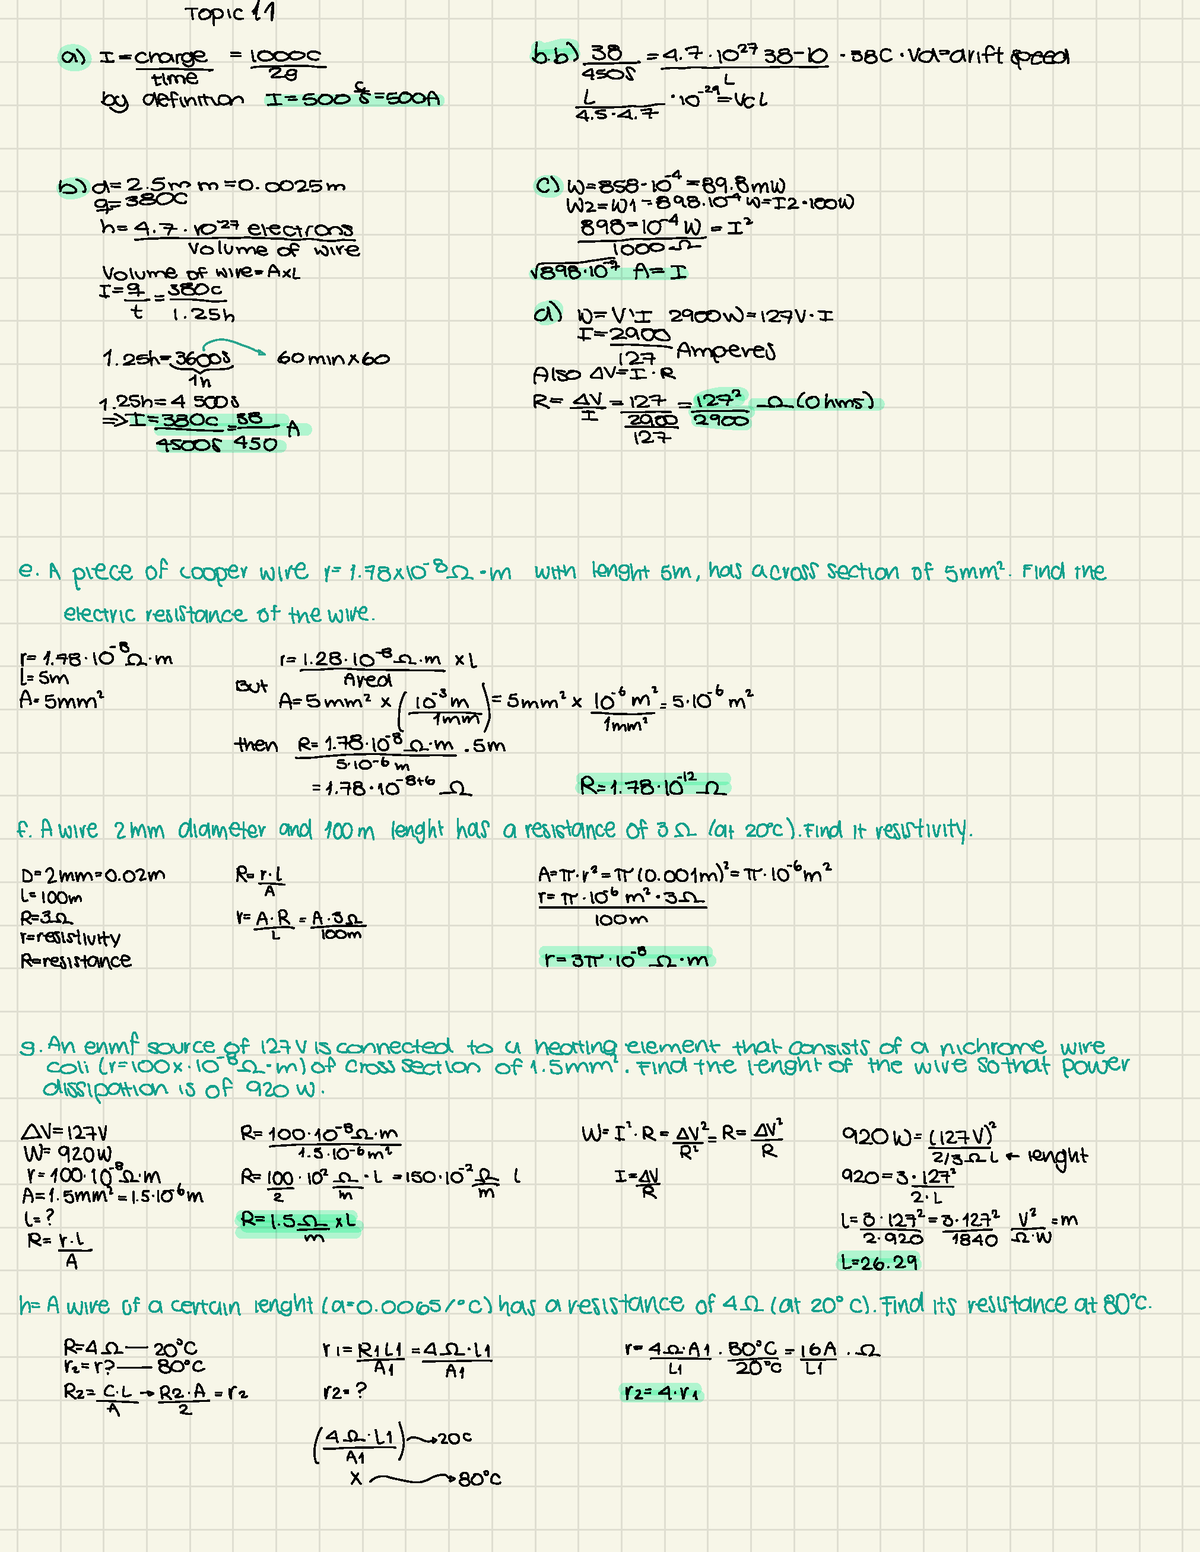 Topic 11
a) I = charge/time = 1000C/2s
by definition I = 500 C/s = 500A
b) d = 2.5mm = 0.0025m
q = 380C
n = 4.7 · 10²⁷ electrons / Volume of wire
Volume of wire = AxL
I = q/t = 380C/1.25h
1.25h = 3600s/1h → 60 min x 60
1.25h = 4 500s
⇒ I = 380C/4500s = 38/450 A
b.b) 38/450s = 4.7 · 10²⁷ 38-10/L · 38C · Vd = drift speed
L/4.5·4.7 · 10⁻²⁹ = VCL
c) W = 858 - 10⁻⁴ = 89.8mW
W2 = W1 - 898.10⁻⁴ W = I2 · 100W
898 - 10⁻⁴ W / 1000 Ω = I²
√898·10⁻⁷ A = I
d) W = V\I 2900W = 127V · I
I = 2900/127 Amperes
Also ΔV = I · R
R = ΔV/I = 127/(2900/127) = 127²/2900 Ω (Ohms)
e. A piece of cooper wire r = 1.78x10⁻⁸ Ω · m with lenght 5m, has a cross section of 5mm². Find the
electric resistance of the wire.
r = 1.78 · 10⁻⁸ Ω · m
L = 5m
A = 5mm²
r = 1.28 · 10⁻⁸ Ω · m / Area x L
But
A = 5mm² x (10⁻³ m / 1mm) = 5mm² x 10⁻⁶ m² / 1mm² = 5·10⁻⁶ m²
then R = 1.78 · 10⁻⁸ Ω · m / 5·10⁻⁶ m . 5m
= 1.78 · 10⁻⁸⁺⁶ Ω
R = 1.78 · 10⁻¹² Ω
f. A wire 2mm diameter and 100m lenght has a resistance of 3Ω (at 20°C). Find it resistivity.
D = 2mm = 0.02m
L = 100m
R = 3Ω
r = resistivity
R = resistance
R = r·L/A
r = A·R/L = A·3Ω/100m
A = π·r² = π(0.001m)² = π·10⁻⁶ m²
r = π·10⁻⁶ m² · 3Ω / 100m
r = 3π · 10⁻⁸ Ω · m
g. An enmf source of 127V is connected to a heating element that consists of a nichrome wire
coli (r = 100x·10⁻⁸ Ω · m) of cross section of 1.5mm². Find the lenght of the wire so that power
dissipation is of 920 W.
ΔV = 127V
W = 920W
r = 100·10⁻⁸ Ω·m
A = 1.5mm² = 1.5·10⁻⁶ m
L = ?
R = r·L/A
R = 100·10⁻⁸ Ω·m / 1.5·10⁻⁶ m²
R = 100/2 · 10² Ω/m · L = 150·10⁻² Ω/m L
R = 1.5 Ω/m x L
W = I²·R = ΔV²/R² = R = ΔV²/R
I = ΔV/R
920 W = (127V)² / 2/3 Ω L ← lenght
920 = 3·127² / 2·L
L = 3·127²/2·920 = 3·127²/1840 V²/Ω·W = m
L = 26.29
h = A wire of a certain lenght (a = 0.0065/°C) has a resistance of 4Ω (at 20°C). Find its resistance at 80°C.
R = 4Ω — 20°C
r₂ = r? — 80°C
R₂ = C·L/A → R2·A/2 = r₂
r1 = R1L1/A1 = 4Ω·L1/A1
r2 = ?
(4Ω·L1/A1) → 20C
X → 80°C
r = 4Ω·A1/L1 · 80°C/20°C = 16A/L1 · Ω
r2 = 4·r1